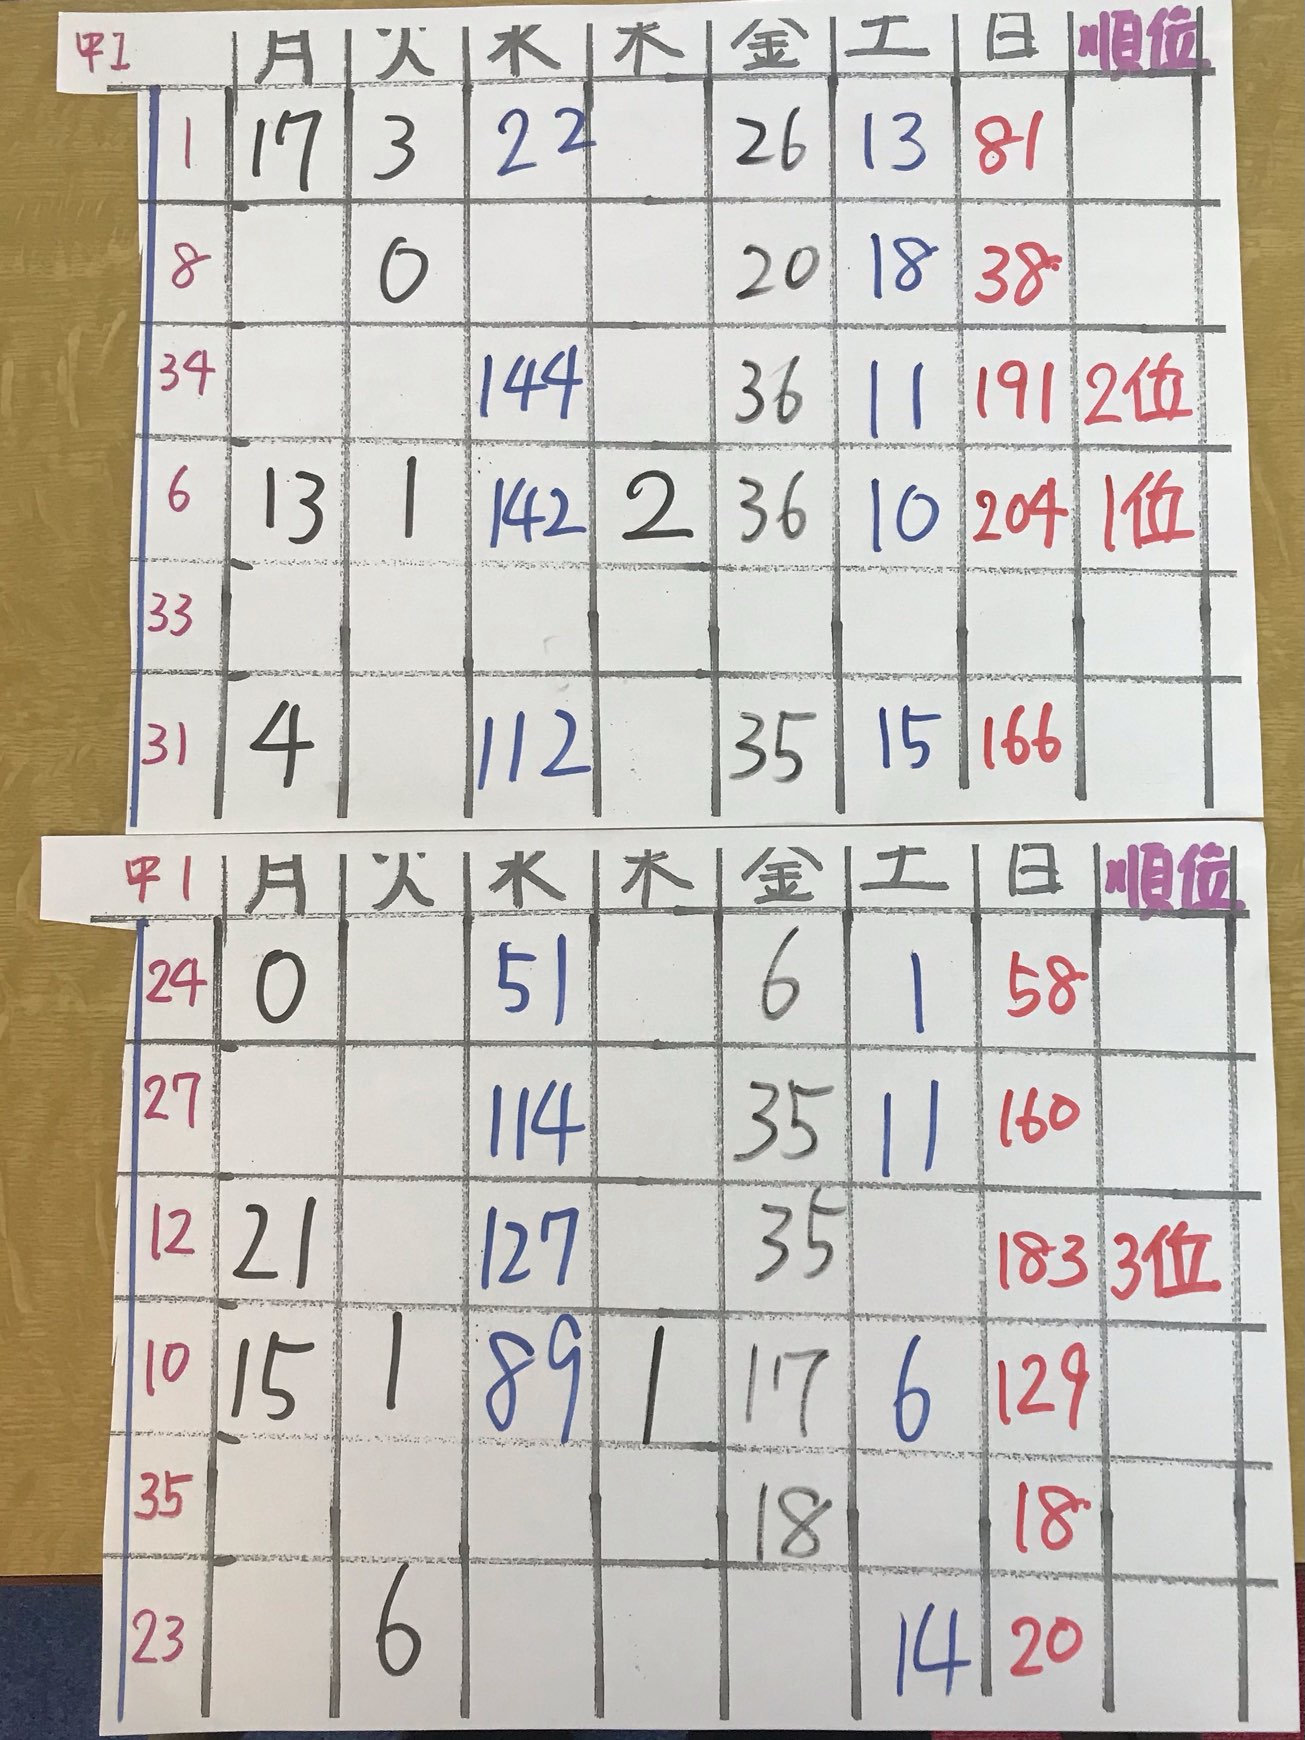 甲1 月 火 水 木 金 土 日 順位
1 17 3 22 26 13 81
8 0 20 18 38
34 144 36 11 191 2位
6 13 1 142 2 36 10 204 1位
33
31 4 112 35 15 166
甲1 月 火 水 木 金 土 日 順位
24 0 51 6 1 58
27 114 35 11 160
12 21 127 35 183 3位
10 15 1 89 1 17 6 129
35 18 18
23 6 14 20